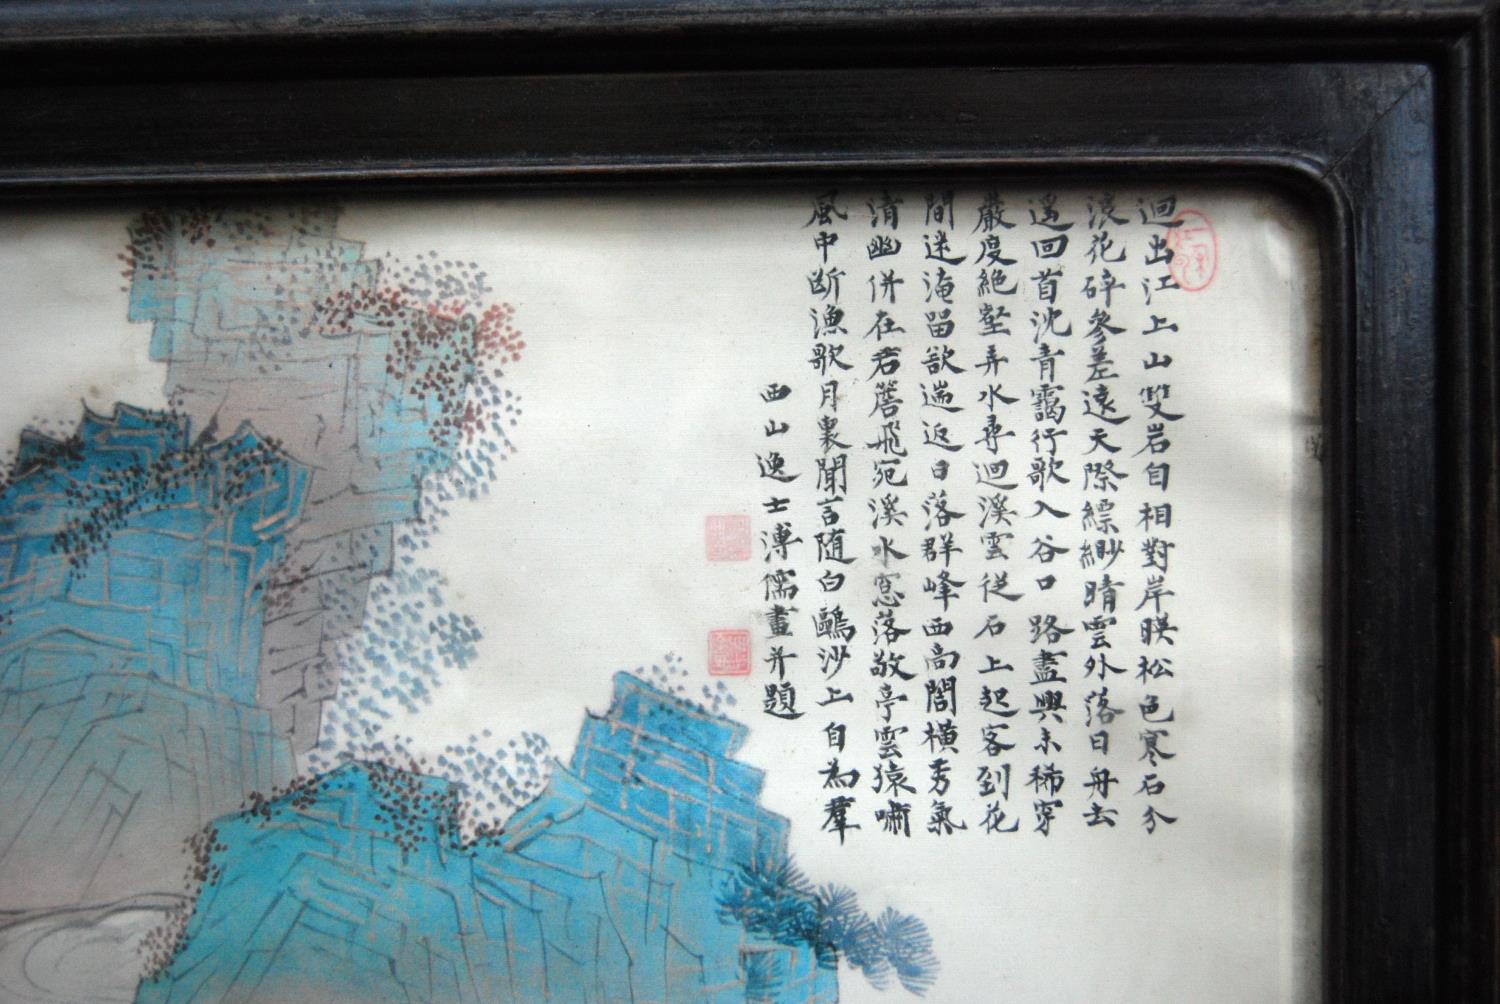 迴出江上山雙岩自相對岸映松色寒石分
浪花碎參差遠天際縹緲晴雲外落日舟去
遙回首沈青靄行歌入谷口路盡興未稀穿
嚴度絕壑弄水尋迴溪雲從石上起客到花
間迷淹留欲遄返日落群峰西高閣橫秀氣
清幽併在君簷飛宛溪水窓落敬亭雲猿嘯
風中斷漁歌月裏聞言随白鷗沙上自為羣
西山逸士溥儒畫并題